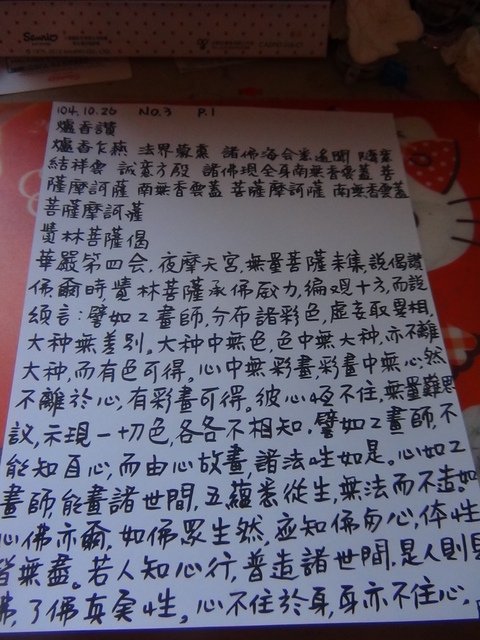 Sanrio
104.10.26 No.3 P.1
爐香讚
爐香乍爇 法界蒙熏 諸佛海会悉遙聞 隨處
結祥雲 誠意方殷 諸佛現全身南無香雲蓋 菩
薩摩訶薩 南無香雲蓋 菩薩摩訶薩 南無香雲蓋
菩薩摩訶薩
覺林菩薩偈
華嚴第四会,夜摩天宮,無量菩薩來集,說偈讚
佛.爾時,覺林菩薩承佛威力,徧观十方,而說
頌言:譬如工畫師,分布諸彩色,虛妄取異相,
大种無差別。大种中無色,色中無大种,亦不離
大种,而有色可得。心中無彩畫,彩畫中無心,然
不離於心,有彩畫可得。彼心恆不住,無量難思
議,示現一切色,各各不相知.譬如工畫師,不
能知自心,而由心故畫,諸法性如是。心如工
畫師,能畫諸世間,五蘊悉從生,無法而不造。如
心佛亦爾,如佛眾生然,應知佛與心,体性
皆無盡。若人知心行,普造諸世間,是人則見
佛,了佛真實性。心不住於身,身亦不住心.